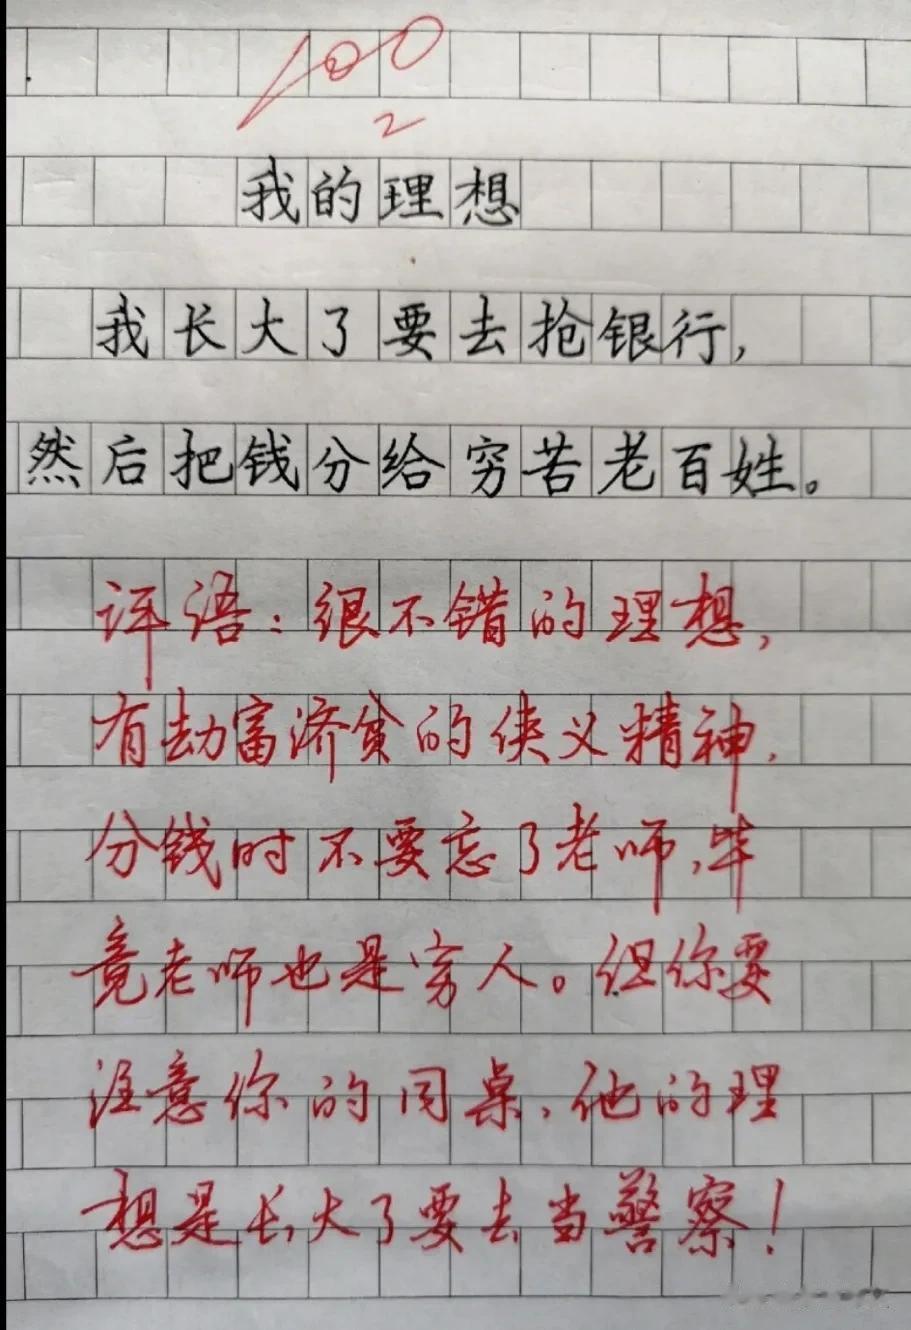 100
2
我的理想
我长大了要去抢银行，
然后把钱分给穷苦老百姓。
评语：很不错的理想，
有劫富济贫的侠义精神，
分钱时不要忘了老师，毕
竟老师也是穷人。但你要
注意你的同桌，他的理
想是长大了要去当警察！